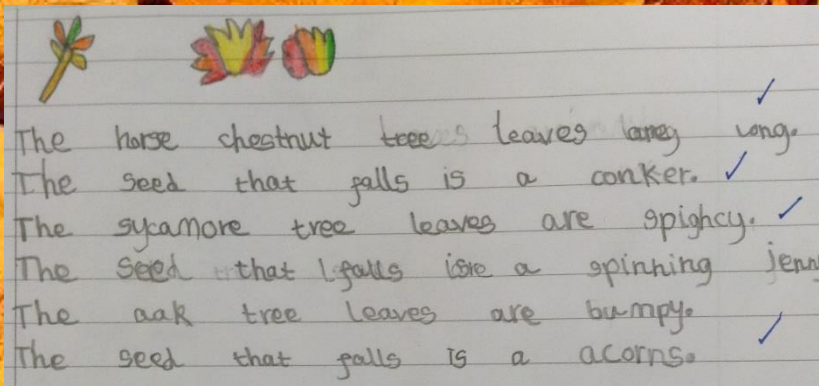 The horse chestnut tree leaves are long.
The seed that falls is a conker.
The sycamore tree leaves are spighcy.
The seed that falls is a spinning jenny
The aak tree leaves are bumpy.
The seed that falls is a acorns.